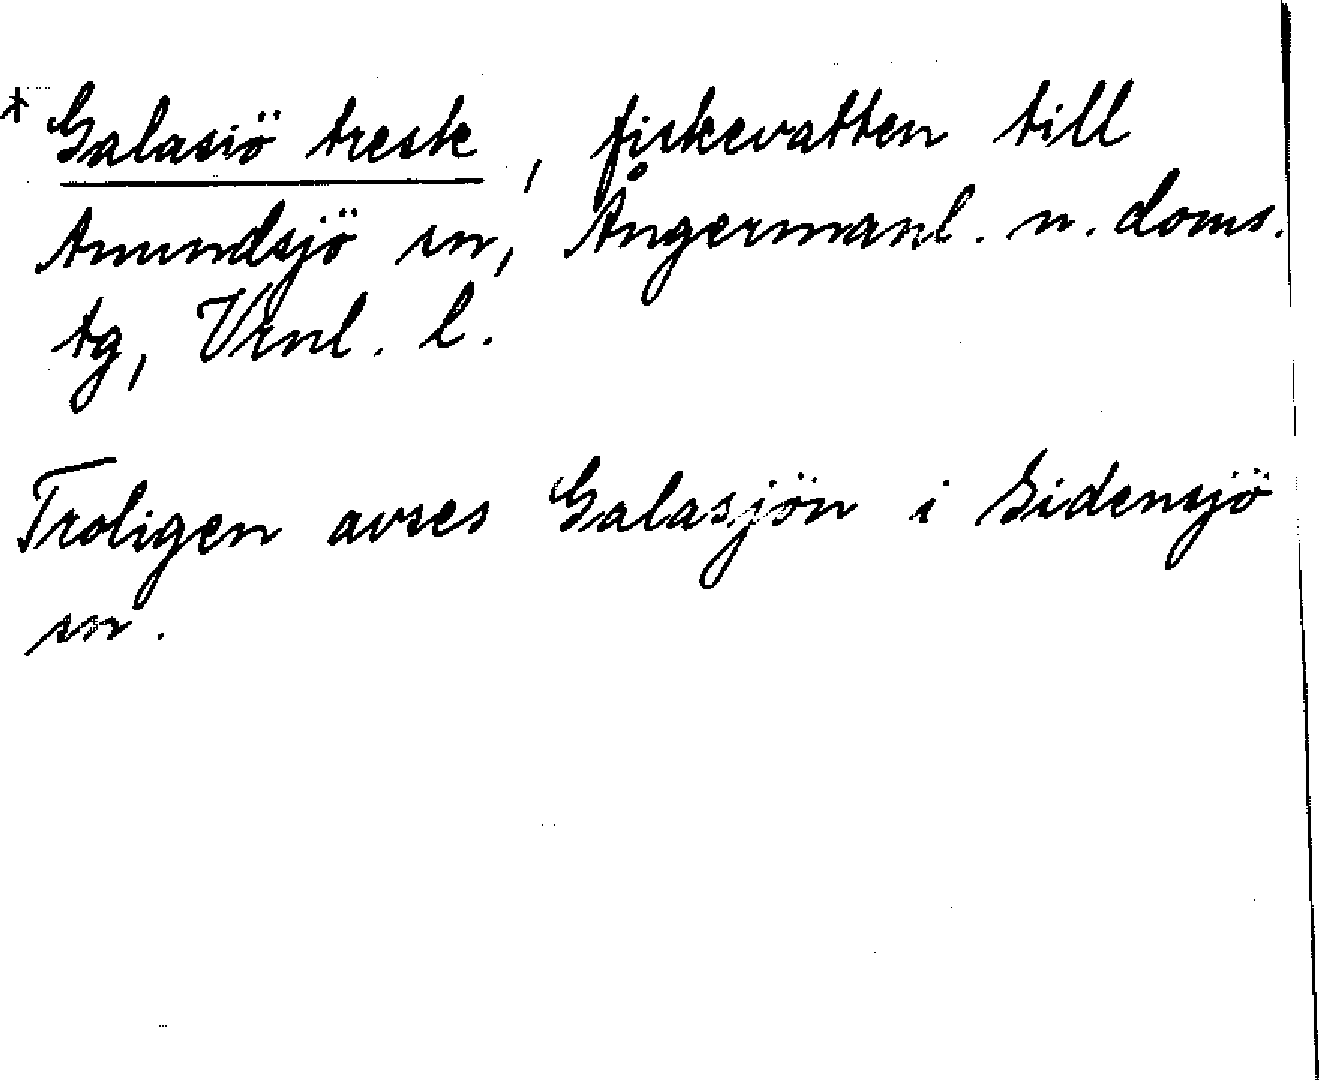 * Galasiö tresk, fiskevatten till
Anundsjö sn, Ångermanl. n. doms.
tg, Vrnl. l.
Troligen avses Galasjön i Sidensjö
sn.